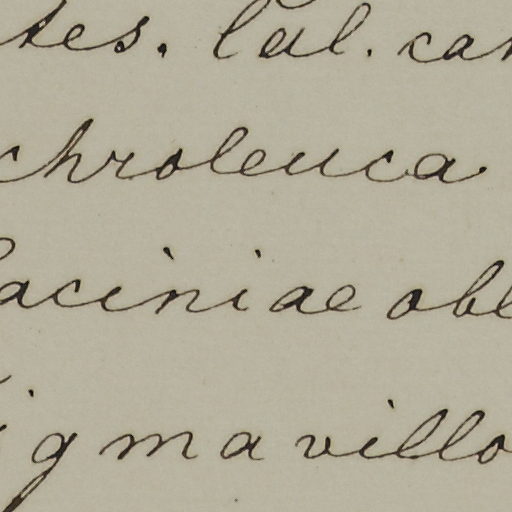 tes. Cal. can
chroleuca
laciniae obl
igma villo